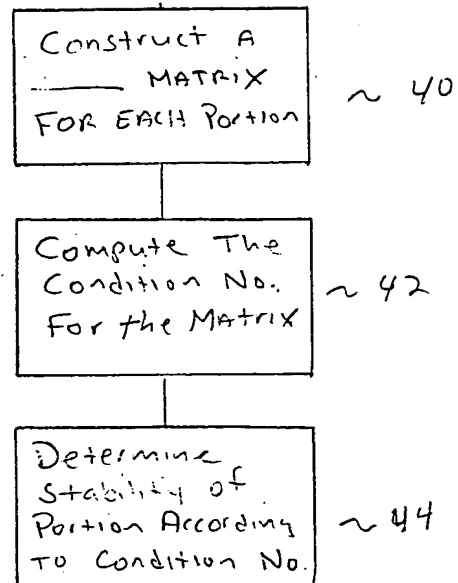 Construct A
____ MATRIX
FOR EACH Portion
~ 40
Compute The
Condition No.
For the MATRIX
~ 42
Determine
Stability of
Portion According
To Condition No.
~ 44